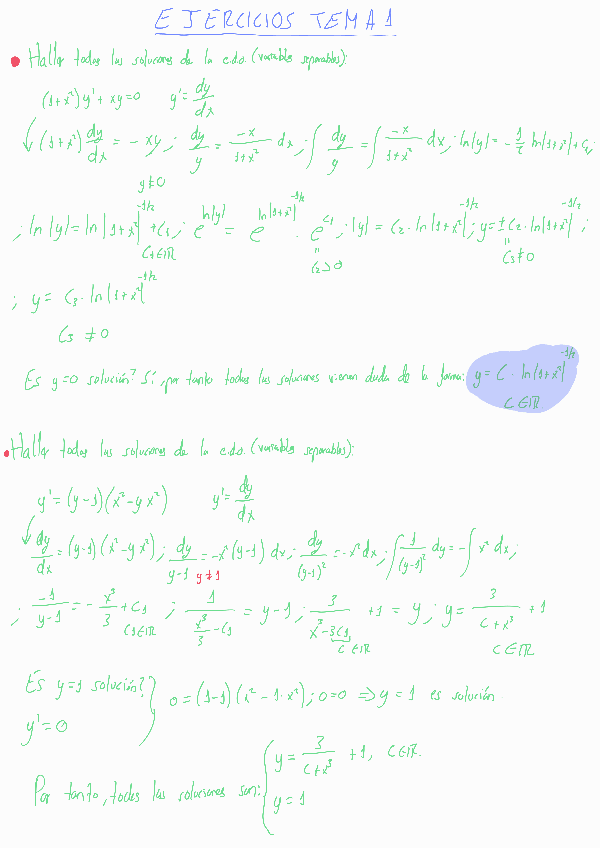 EJERCICIOS TEMA 1
• Hallar todas las soluciones de la e.d.o. (variables separables):
(1+x²)y' + xy = 0   y' = dy/dx
(1+x²) dy/dx = -xy ; dy/y = -x/(1+x²) dx ; ∫ dy/y = ∫ -x/(1+x²) dx ; ln|y| = -1/2 ln|1+x²| + C₁ ;
y≠0
; ln|y| = ln|1+x²|^(-1/2) + C₁ ; e^(ln|y|) = e^(ln|1+x²|^(-1/2)) · e^(C₁) ; |y| = C₂ · ln|1+x²|^(-1/2) ; y = ±C₂ · ln|1+x²|^(-1/2) ;
C₁∈ℝ   " C₂>0   " C₃≠0
; y = C₃ · ln|1+x²|^(-1/2)
C₃ ≠ 0
Es y=0 solución? Sí, por tanto todas las soluciones vienen dadas de la forma: y = C · ln|1+x²|^(-1/2)
C∈ℝ
• Hallar todas las soluciones de la e.d.o. (variables separables):
y' = (y-1)(x²-yx²)   y' = dy/dx
dy/dx = (y-1)(x²-yx²) ; dy/(y-1) = -x²(y-1) dx ; dy/(y-1)² = -x² dx ; ∫ 1/(y-1)² dy = -∫ x² dx ;
y≠1
; -1/(y-1) = -x³/3 + C₁ ; 1/(x³/3 - C₁) = y-1 ; 3/(x³-3C₁) + 1 = y ; y = 3/(C+x³) + 1
C₁∈ℝ   C∈ℝ   C∈ℝ
Es y=1 solución?
y' = 0
0 = (1-1)(x²-1·x²) ; 0=0 ⇒ y=1 es solución
Por tanto, todas las soluciones son:
y = 3/(C+x³) + 1, C∈ℝ.
y = 1